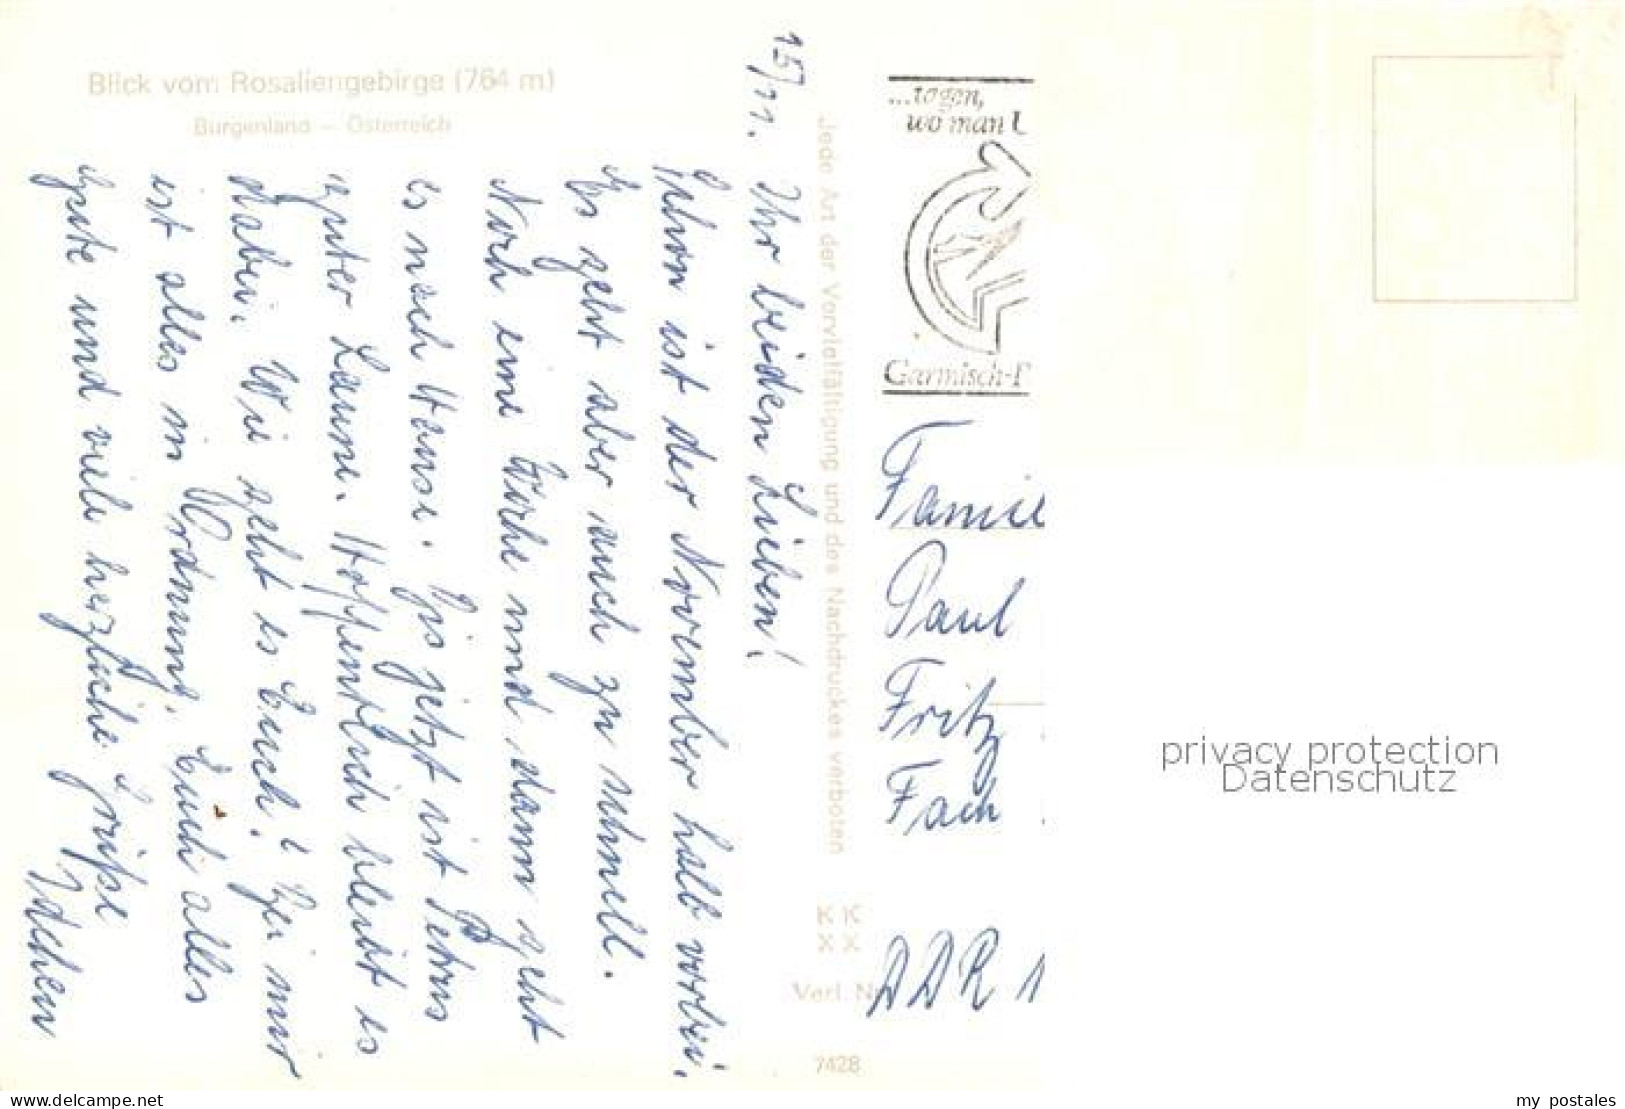 Blick vom Rosaliengebirge (764 m)
Burgenland – Österreich
15/11.
Ihr beiden Lieben!
Schon ist der November halb vorbei.
Es geht aber auch zu schnell.
Noch eine Woche und dann geht
es nach Hause. Bis jetzt ist Petrus
guter Laune. Hoffentlich bleibt es
dabei. Wie geht es Euch? Bei mir
ist alles in Ordnung. Euch alles
Gute und viele herzliche Grüße
Jede Art der Vervielfältigung und des Nachdruckes verboten
K K
X X
Verl. N
7428
...
wo man
Garmisch-P
Famil
Paul
Fritz
DDR 1
privacy protection
Datenschutz
www.delcampe.net
my_postales